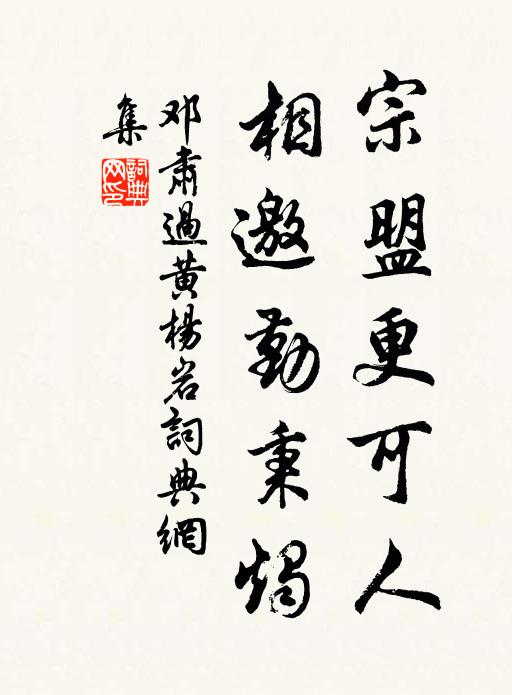 宗盟更可人
相邀勤秉燭
邓肃過黄楊岩詞典網
集
詞典网印